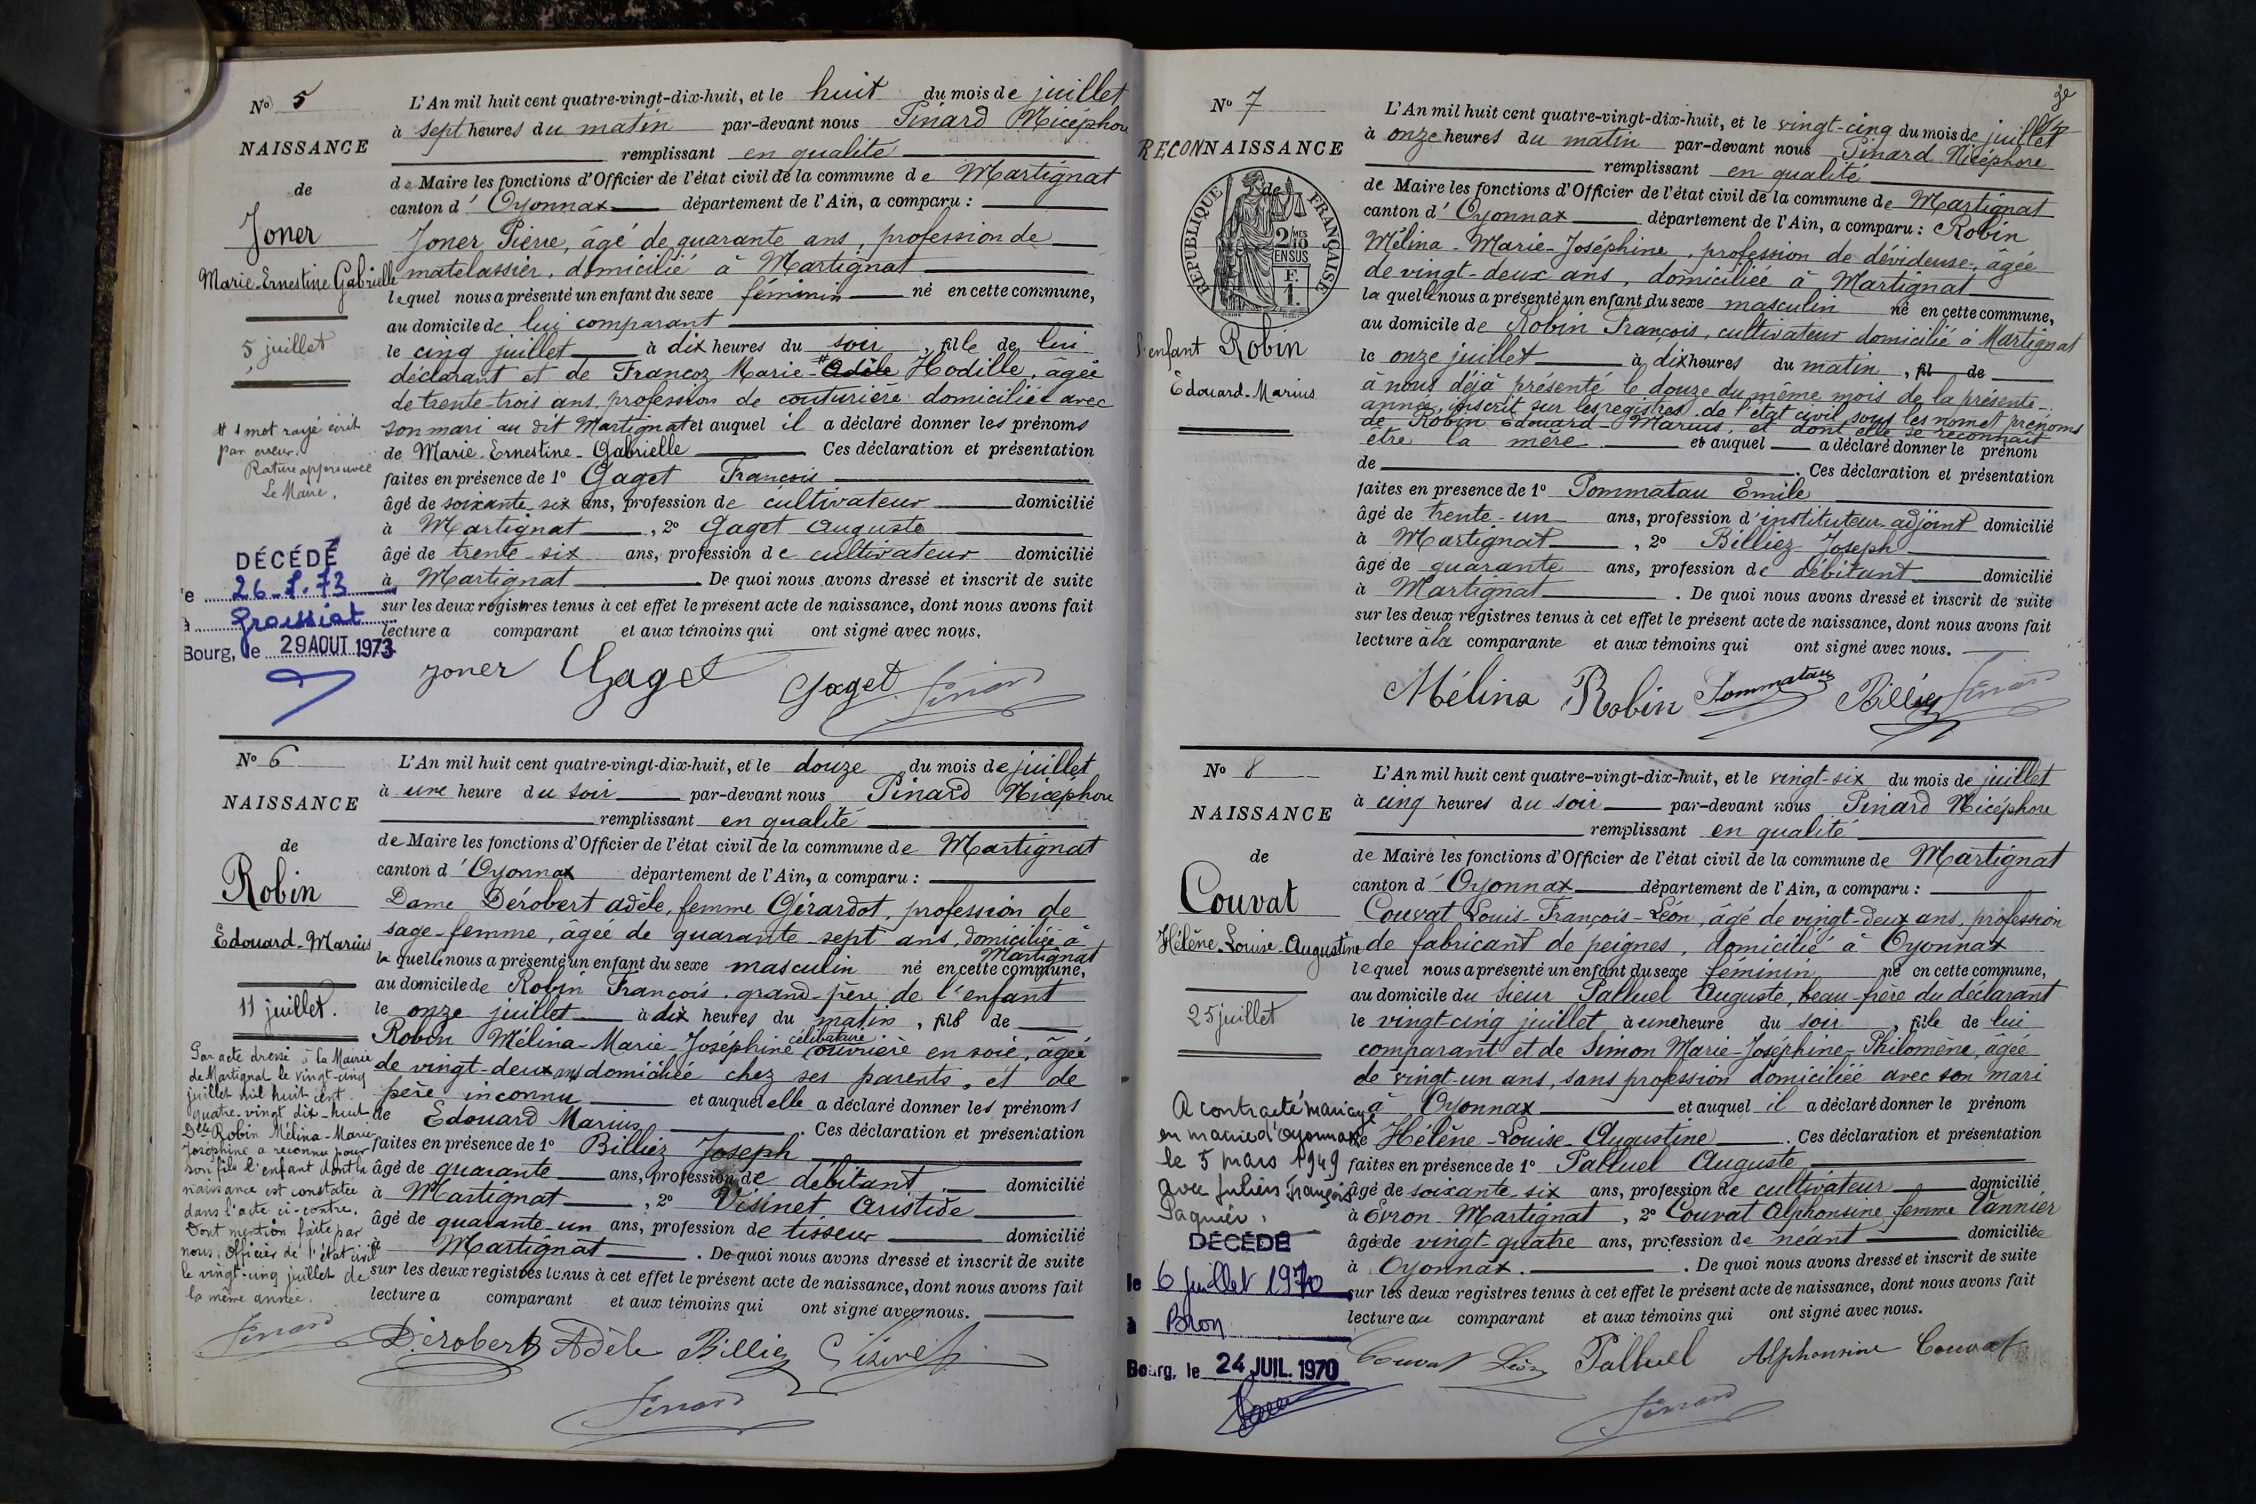 No 5
NAISSANCE
de
Joner
Marie-Ernestine Gabrielle
5 juillet
# 1 mot rayé écrit
par erreur.
Rature approuvée
Le Maire,
DÉCÉDÉ
le 26.8.73
à Groissiat
Bourg, le 29 AOUT 1973
L'An mil huit cent quatre-vingt-dix-huit, et le huit du mois de juillet
à sept heures du matin par-devant nous Pinard Nicéphore
remplissant en qualité
de Maire les fonctions d'Officier de l'état civil de la commune de Martignat
canton d' Oyonnax département de l'Ain, a comparu :
Joner Pierre, âgé de quarante ans, profession de
matelassier, domicilié à Martignat
lequel nous a présenté un enfant du sexe féminin né en cette commune,
au domicile de lui comparant
le cinq juillet à dix heures du soir, fille de lui
déclarant et de Francoz Marie-# Adèle Hodille, âgée
de trente-trois ans, profession de couturière domiciliée avec
son mari au dit Martignat et auquel il a déclaré donner les prénoms
de Marie-Ernestine-Gabrielle Ces déclaration et présentation
faites en présence de 1o Gaget François
âgé de soixante-six ans, profession de cultivateur domicilié
à Martignat, 2o Gaget Auguste
âgé de trente-six ans, profession de cultivateur domicilié
à Martignat. De quoi nous avons dressé et inscrit de suite
sur les deux registres tenus à cet effet le présent acte de naissance, dont nous avons fait
lecture a comparant et aux témoins qui ont signé avec nous.
Joner Gaget Gaget Pinard
No 6
NAISSANCE
de
Robin
Edouard-Marius
11 juillet.
Par acte dressé à la Mairie
de Martignat le vingt-cinq
juillet mil huit cent
quatre-vingt dix-huit
Dlle Robin Mélina-Marie-
Joséphine a reconnu pour
son fils l'enfant dont la
naissance est constatée
dans l'acte ci-contre.
Dont mention faite par
nous, Officier de l'état civil
le vingt-cinq juillet de
la même année.
Pinard
L'An mil huit cent quatre-vingt-dix-huit, et le douze du mois de juillet
à une heure du soir par-devant nous Pinard Nicéphore
remplissant en qualité
de Maire les fonctions d'Officier de l'état civil de la commune de Martignat
canton d' Oyonnax département de l'Ain, a comparu :
Dame Dérobert Adèle, femme Girardot, profession de
sage-femme, âgée de quarante-sept ans, domiciliée à
Martignat
laquelle nous a présenté un enfant du sexe masculin né en cette commune,
au domicile de Robin François, grand-père de l'enfant
le onze juillet à dix heures du matin, fils de
célibataire
Robin Mélina-Marie-Joséphine ouvrière en soie, âgée
de vingt-deux ans domiciliée chez ses parents, et de
père inconnu et auquel elle a déclaré donner les prénoms
de Edouard Marius. Ces déclaration et présentation
faites en présence de 1o Billiez Joseph
âgé de quarante ans, profession de débitant domicilié
à Martignat, 2o Visinet Aristide
âgé de quarante-un ans, profession de tisseur domicilié
à Martignat. De quoi nous avons dressé et inscrit de suite
sur les deux registres tenus à cet effet le présent acte de naissance, dont nous avons fait
lecture a comparant et aux témoins qui ont signé avec nous.
Dérobert Adèle Billiez Visinet
Pinard
No 7
RECONNAISSANCE
de
RÉPUBLIQUE FRANÇAISE
2/10 MES
EN SUS
F.
1.
l'enfant Robin
Edouard-Marius
L'An mil huit cent quatre-vingt-dix-huit, et le vingt-cinq du mois de juillet
à onze heures du matin par-devant nous Pinard Nicéphore
remplissant en qualité
de Maire les fonctions d'Officier de l'état civil de la commune de Martignat
canton d' Oyonnax département de l'Ain, a comparu : Robin
Mélina-Marie-Joséphine, profession de dévideuse, âgée
de vingt-deux ans, domiciliée à Martignat
laquelle nous a présenté un enfant du sexe masculin né en cette commune,
au domicile de Robin François, cultivateur domicilié à Martignat
le onze juillet à dix heures du matin, fil de
à nous déjà présenté le douze du même mois de la présente
année, inscrit sur les registres de l'état civil sous les nom et prénoms
de Robin Edouard-Marius, et dont elle se reconnaît
être la mère et auquel a déclaré donner le prénom
de . Ces déclaration et présentation
faites en présence de 1o Pommatau Emile
âgé de trente-un ans, profession d'instituteur-adjoint domicilié
à Martignat, 2o Billiez Joseph
âgé de quarante ans, profession de débitant domicilié
à Martignat. De quoi nous avons dressé et inscrit de suite
sur les deux registres tenus à cet effet le présent acte de naissance, dont nous avons fait
lecture à la comparante et aux témoins qui ont signé avec nous.
Mélina Robin Pommatau Billiez Pinard
No 8
NAISSANCE
de
Couvat
Hélène-Louise-Augustine
25 juillet
A contracté mariage
en mairie d'Oyonnax
le 5 mars 1949
avec Julien François
Paquier.
DÉCÉDÉ
le 6 Juillet 1970
à Bron
Bourg, le 24 JUIL. 1970
L'An mil huit cent quatre-vingt-dix-huit, et le vingt-six du mois de juillet
à cinq heures du soir par-devant nous Pinard Nicéphore
remplissant en qualité
de Maire les fonctions d'Officier de l'état civil de la commune de Martignat
canton d' Oyonnax département de l'Ain, a comparu :
Couvat Louis-François-Léon, âgé de vingt-deux ans, profession
de fabricant de peignes, domicilié à Oyonnax
lequel nous a présenté un enfant du sexe féminin né en cette commune,
au domicile du sieur Palluel Auguste, beau-frère du déclarant
le vingt-cinq juillet à une heure du soir, fille de lui
comparant et de Simon Marie-Joséphine-Philomène, âgée
de vingt-un ans, sans profession domiciliée avec son mari
à Oyonnax et auquel il a déclaré donner le prénom
de Hélène-Louise-Augustine. Ces déclaration et présentation
faites en présence de 1o Palluel Auguste
âgé de soixante-six ans, profession de cultivateur domicilié
à Evron Martignat, 2o Couvat Alphonsine femme Vannier
âgée de vingt-quatre ans, profession de néant domiciliée
à Oyonnax. De quoi nous avons dressé et inscrit de suite
sur les deux registres tenus à cet effet le présent acte de naissance, dont nous avons fait
lecture au comparant et aux témoins qui ont signé avec nous.
Couvat Léon Palluel Alphonsine Couvat
Pinard